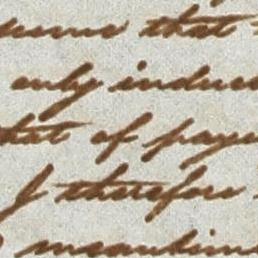 that
only induce
that of paye
I therefore
meantime